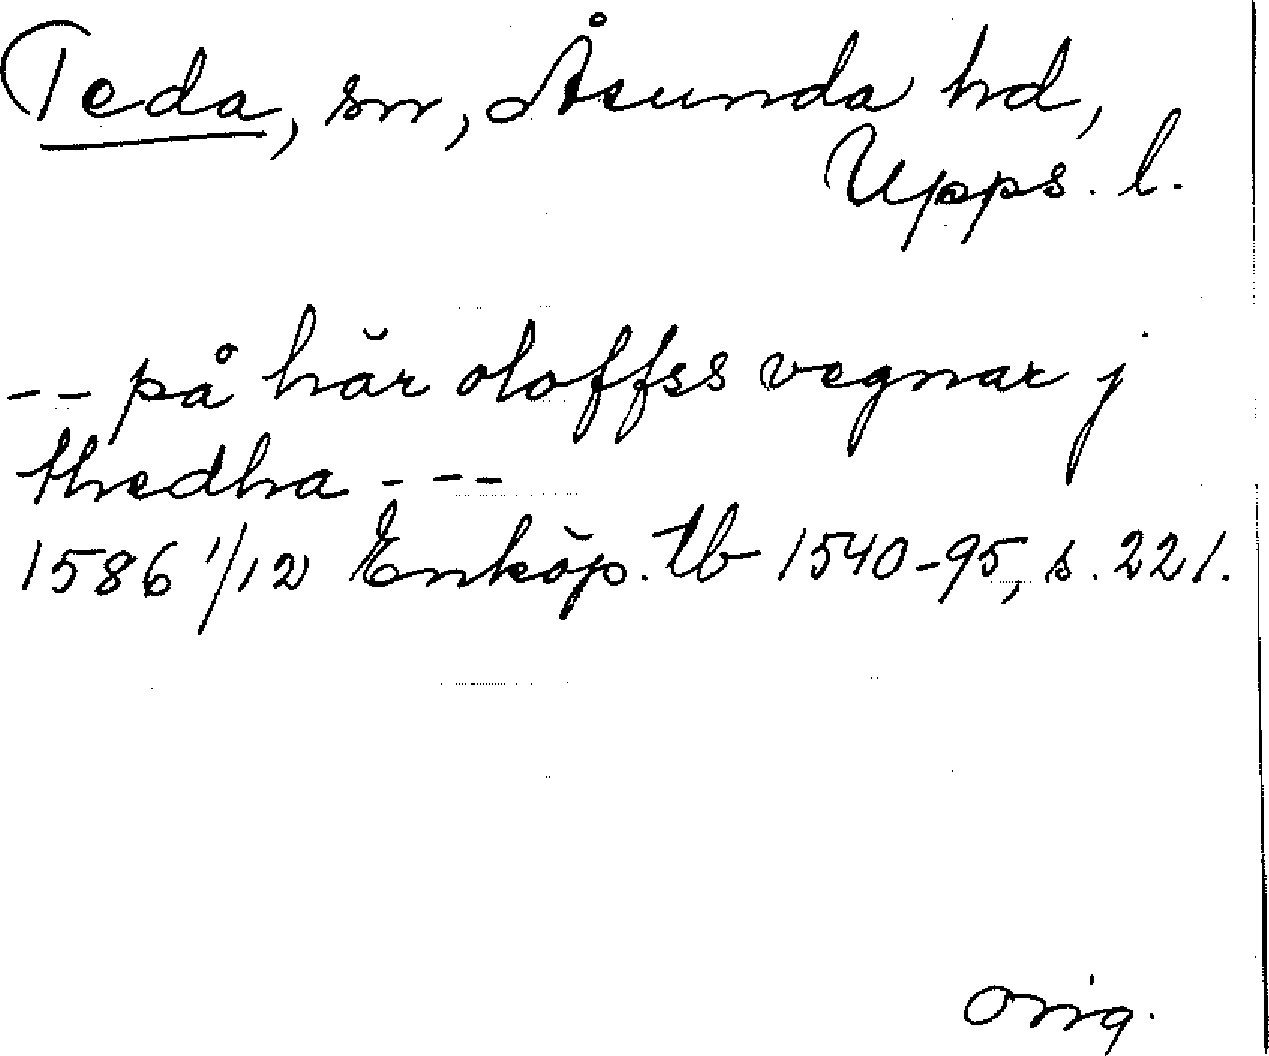 Teda, sn, Åsunda hd,
Upps. l.
-- på här oloffss vegnar j
thedha ---
1586 1/12 Enköp. tb 1540-95, s. 221.
orig.